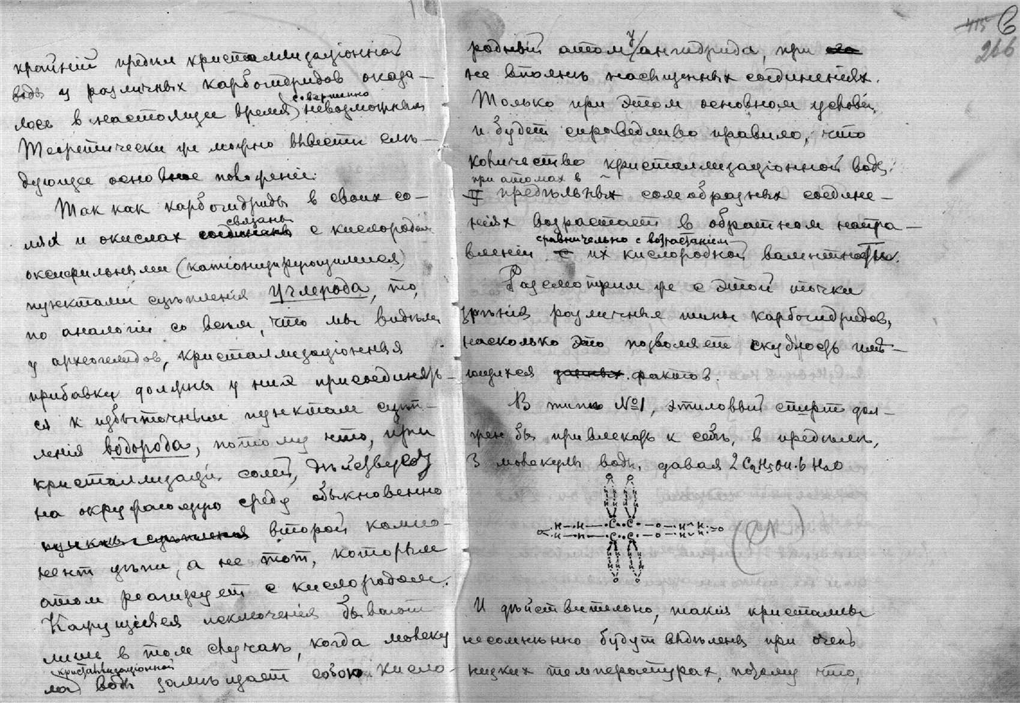 крайній предѣл кристаллизаціонной
воды у различных карбогидридов оказа-
лось в настоящее время совершенно невозможным
Теоретически же можно вывести слѣ-
дующее основное положеніе:
Так как карбогидриды в своих со-
лях и окислах связаны с кислородом
оксерильными (катіонизирующимися)
пунктами сцѣпленія углерода, то,
по аналогіи со всем, что мы видѣли
у археогелидов, кристаллизаціонныя
прибавки должны у них присоединять-
ся к избыточным пунктам сцѣп-
ленія водорода, потому что, при
кристаллизаціи солей, дѣйствует
на окружающую среду обыкновенно
второй компо-
нент цѣпи, а не тот, которым
атом реагирует с кислородом.
Кажущіяся исключенія бывают
лишь в том случаѣ, когда молеку
ла кристаллизаціонной воды замѣщает собою кисло-
415
266
родный атом у ангидрида, при
не вполнѣ насыщенных соединеніях.
Только при этом основном условіи
и будет справедливо правило, что
количество кристаллизаціонной воды
при атомах в
предѣльных солеобразных соедине-
ніях возрастает в обратном напра-
вленіи, сравнительно с возрастаніем
их кислородной валентности.
Разсмотрим же с этой точки
зрѣнія различные типы карбогидридов,
насколько это позволяет скудность имѣ-
ющихся фактов.
В типѣ №1, этиловый спирт дол-
жен бы привлекать к себѣ, в предѣлѣ,
3 молекулы воды, давая 2C₂H₅OH·6H₂O
(№)
И дѣйствительно, такія кристаллы
несомнѣнно будут выдѣлены при очень
низких температурах, потому что,